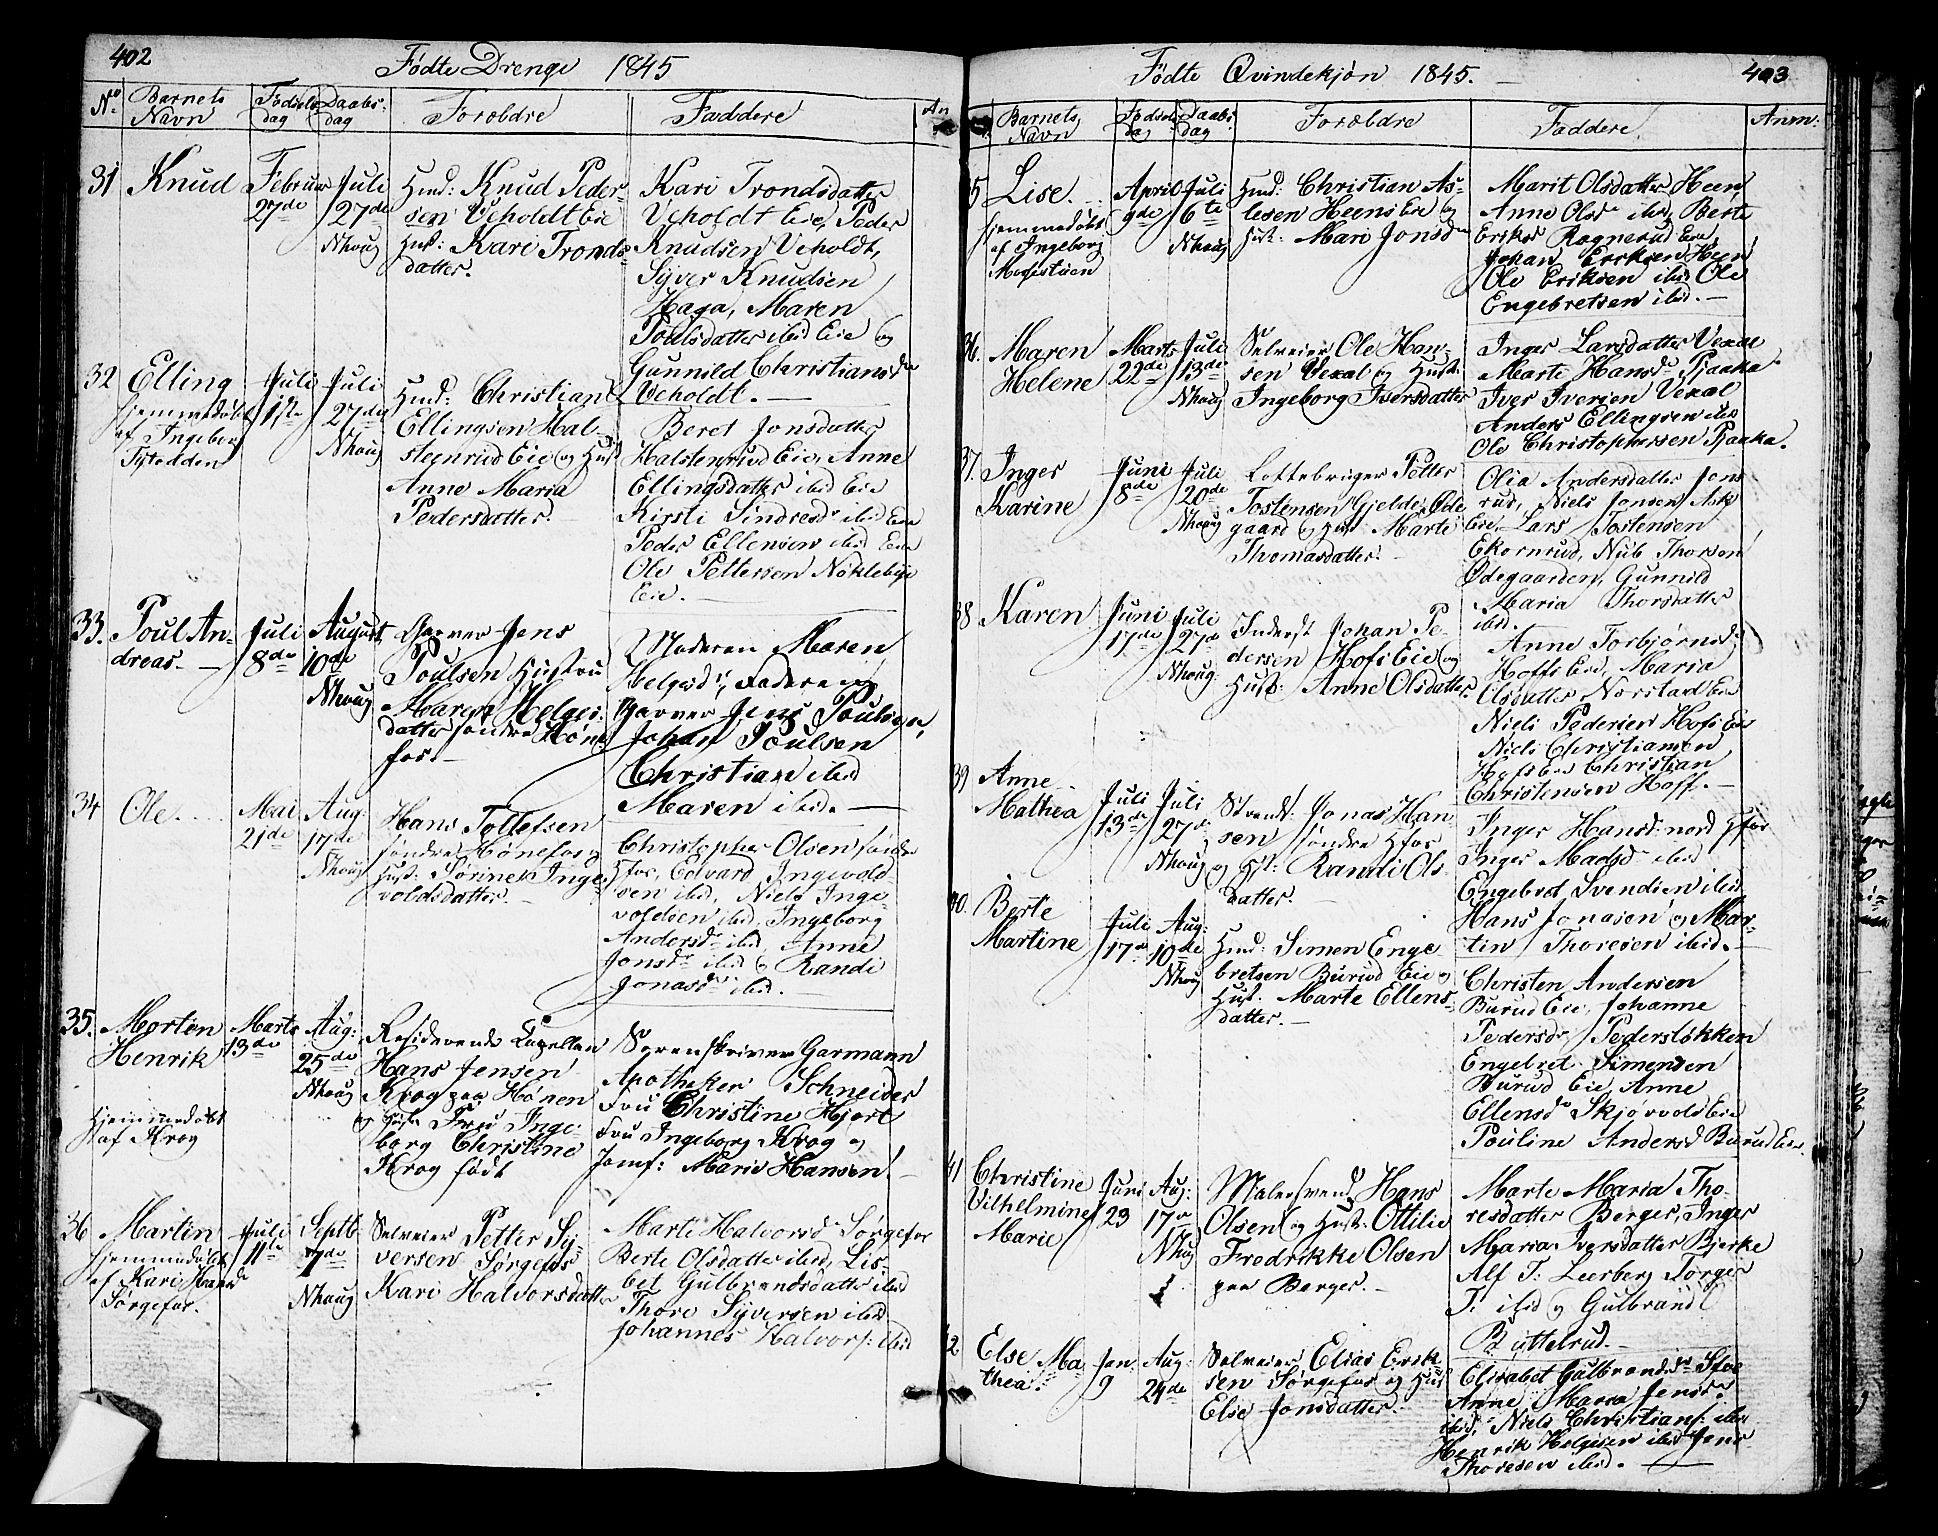 402
Fødte Drenge 1845
No Barnets Navn Fødsels dag Daabs: dag Forældre Faddere An
31 Knud Februar 27de Juli 27de Nhoug
Hmd: Knud Peder-
sen Veholdt Eie
Hust: Kari Tronds-
datter.
Kari Trondsdatter
Veholdt Eie, Peder
Knudsen Veholdt,
Syver Knudsen
Haga, Maren
Poulsdatter ibid Eie og
Gunnild Christiansdr
Veholdt. —
32 Elling Juli 1ste Juli 27de Nhoug
hjemmedøbt
af Ingeborg
Tytedden
Hmd: Christian
Ellingsen Hal-
steenrud Eie og Hust
Anne Maria
Pedersdatter.
Beret Jonsdatter
Halstenrud Eie, Anne
Ellingsdatter ibid Eie
Kirsti Sindresdr ibid Eie
Peder Ellensen ibid Eie
Ole Pettersen Nøklebye
Eie. —
33. Poul An-
dreas. — Juli 8de August 10de Nhoug
Garver Jens
Poulsen Hustru
Maren Helges-
datter søndre Høne
fos. —
Moderen Maren
Helgesdr, Faderen
Garver Jens Poulsen,
Johan Poulsen
Christian ibid
Maren ibid. —
34 Ole. Mai 21de Aug: 17de Nhoug
Hans Tollefsen
søndre Hønefos og
Hust: Sørine Inge-
voldsdatter. —
Christopher Olsen søndre
Hfos, Edvard Ingevold
sen ibid, Niels Inge-
voldsen ibid, Ingeborg
Andersdr ibid, Anne
Jonsdr ibid og Randi
Jonasdr ibid.
35. Morten
Henrik Marts 13de Aug: 25de Nhoug
Hjemmedøbt
af Krog
Residerende Capellan
Hans Jensen
Krog paa Hønen
og Hust Fru Inge-
borg Christine
Krog født
Sorenskriver Garmann
Apotheker Schneider
Fru Christine Hjort
Fru Ingeborg Krog og
Jomf: Marie Hansen. —
36 Martin Juli 11te Septb 7de Nhoug
hjemmedøbt
af Kari Haard
Sørgefos.
Selveier Petter Sy-
versen Sørgefos
Kari Halvorsdatter
Marte Halvorsdr Sørgefos
Berte Olsdatter ibid, Lis-
bet Gulbrandsdatter ibid
Thore Syversen ibid
Johannes Halvors: ibid
403
Fødte Qvindekjøn 1845. —
Barnets Navn Fødsels dag Daabs: dag Forældre Faddere. Anm:
35 Lise. April 9de Juli 6te Nhoug
hjemmedøbt
af Ingeborg
Hmd: Christian As-
lesen Heens Eie og
Hust: Mari Jonsdr
Marit Olsdatter Heen
Anne Olsdr ibid, Berte
Eriksdr Ragnerud Eie,
Johan Eriksen Heen
Ole Eriksen ibid Ole
Engebretsen ibid. —
36. Maren
Helene Marts 22de Juli 13de Nhoug
Selveier Ole Han-
sen Vexal og Hust:
Ingeborg Iversdatter
Inger Larsdatter Vexal
Marte Hansdr Pjaaka
Iver Iversen Vexal
Anders Ellingsen ibid
Ole Christophersen Pjaaka.
37. Inger
Karine Juni 8de Juli 20de Nhoug
Lottebruger Petter
Tostensen Gjelde Øde
gaard og Hust Marte
Thomasdatter. —
Olia Andersdatter Jons
rud, Niels Jonsen Ask
Eie, Lars Tostensen
Ekornrud, Nub Thorsen
Ødegaarden, Gunnild
Maria Thorsdatter
ibid.
38 Karen Juni 17de Juli 27de Nhoug
Inderst Johan Pe-
dersen Hofs Eie og
Hust: Anne Olsdatter
Anne Torbjørnsdr
Hoffs Eie, Maria
Olsdatter Norstad Eie
Niels Pedersen Hofs Eie
Niels Christiansen
Hofs Eie Christian
Christensen Hoff. —
39 Anne
Mathea Juli 13de Juli 27de Nhoug
Strands: Jonas Han-
sen søndre Hfos
og Hst: Randi Ols-
datter. —
Inger Hansd: nord Hfos
Inger Madsdr ibid
Engebret Svendsen ibid
Hans Jonasen og Mar-
tin Thoresen ibid. —
40. Berte
Martine Juli 17de Aug: 10de Nhoug
Hmd: Simen Enge
bretsen Burud Eie og
Hust: Marte Ellens-
datter. —
Christen Andersen
Burud Eie, Johanne
Pedersdr Pedersløkken
Engebret Simensen
Burud Eie Anne
Ellensdr Skjørvold Eie
Pouline Andersd Burud Eie.
41 Christine
Vilhelmine
Marie Juni 23 Aug: 17de Nhoug
Malersvend Hans
Olsen og Hust: Ottilie
Fredrikke Olsen
paa Berger. —
Marte Maria Tho-
resdatter Berger, Inger
Maria Iversdatter Bjerke
Alf T: Leerberg Torger
T: ibid og Gulbrand
Byttelrud. —
42 Else Ma
thea. Jan 9 Aug: 24de
Selveier Elias Erik
sen Sørgefos og Hust
Else Jonsdatter. —
Elisabet Gulbrandsdr
Anne Maria Jensdr
ibid, Niels Christians: ibid
Henrik Helgesen ibid Jens
Thoresen ibid. —